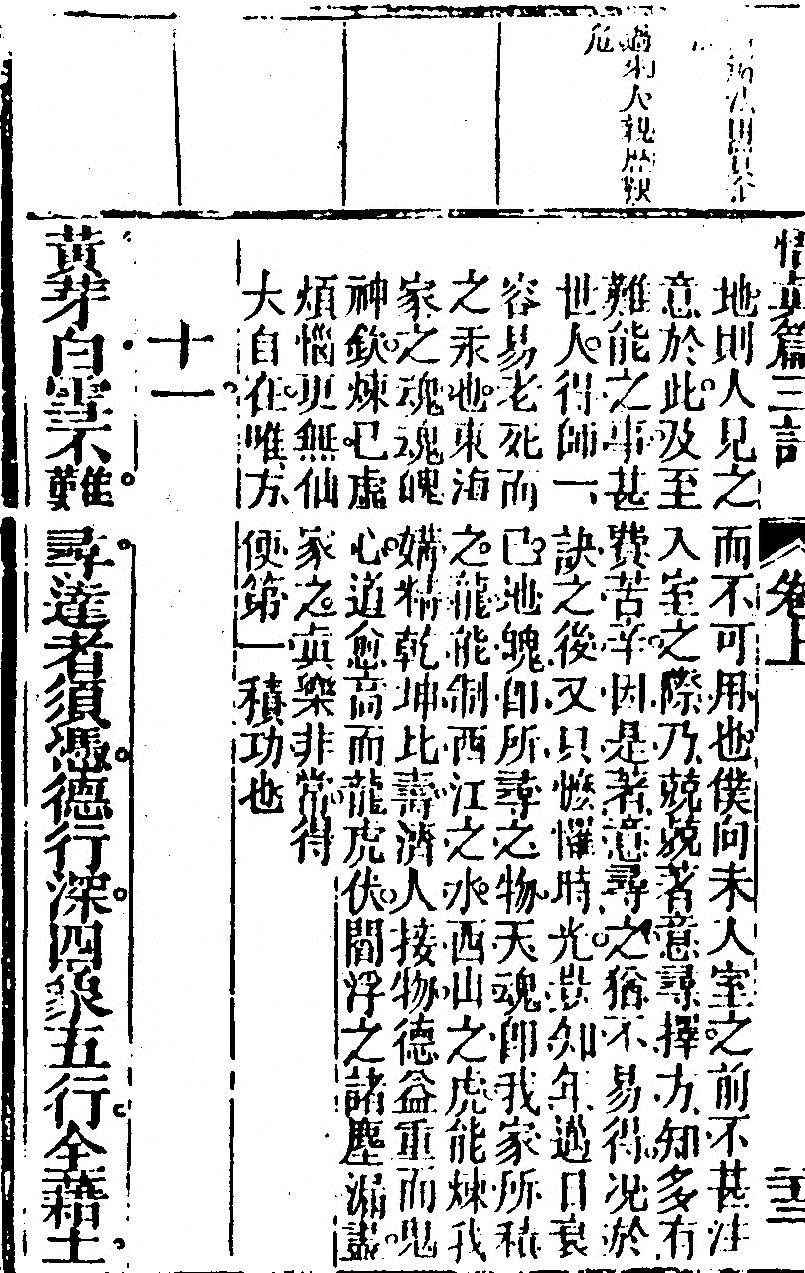 悟真篇三註 卷上
人親歷
危
地則人見之而不可用也僕向未入室之前不甚注
意於此及至入室之際乃兢兢著意尋擇方知多有
難能之事甚費苦辛因是著意尋之猶不易得况於
世人得師一訣之後又只懡㦬時光豈知年過日衰
容易老死而已地魄卽所尋之物天魂卽我家所積
之汞也東海之龍能制西江之水西山之虎能煉我
家之魂魂魄媾精乾坤比壽濟人接物德益重而鬼
神欽煉已虛心道愈高而龍虎伏閻浮之諸塵漏盡
煩惱更無仙家之眞樂非常得
大自在唯方便第一積功也
十一
黃芽白雪不難尋達者須憑德行深四象五行全藉土